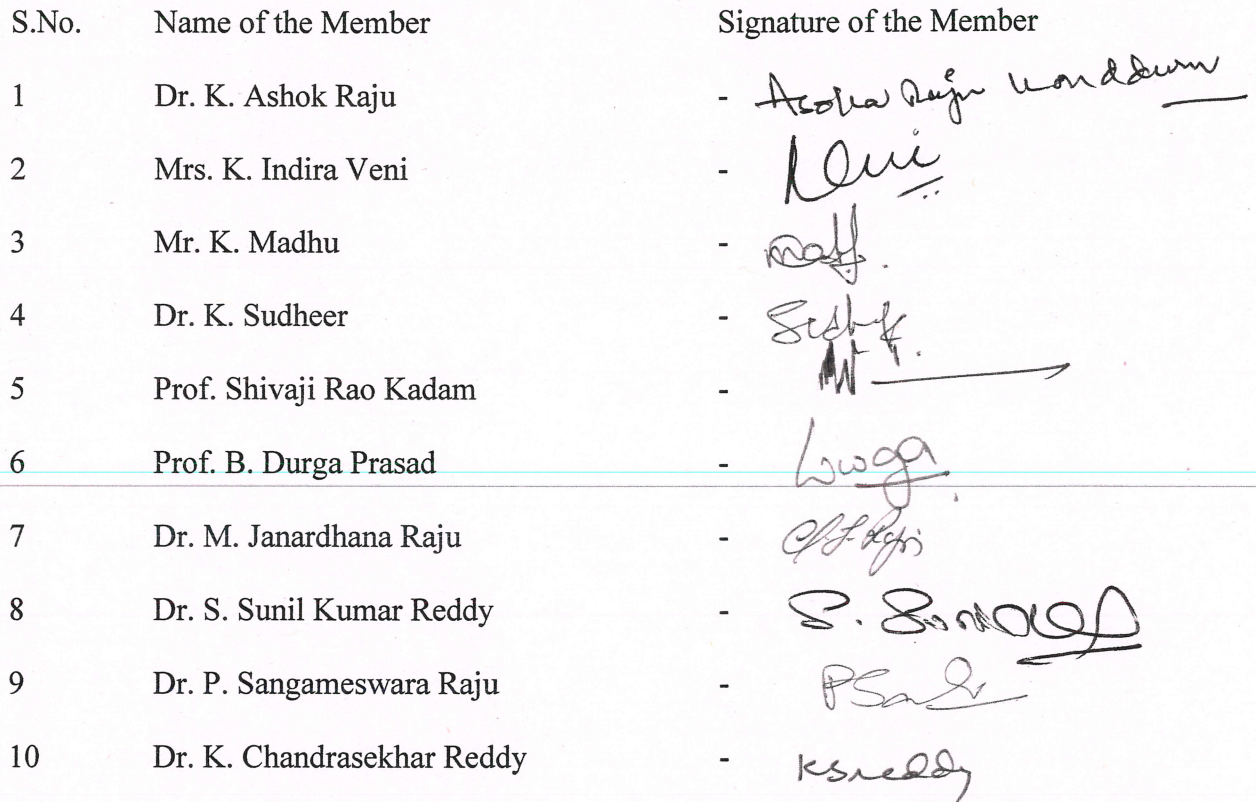 S.No. Name of the Member Signature of the Member
1 Dr. K. Ashok Raju - Asoka Raju
2 Mrs. K. Indira Veni -
3 Mr. K. Madhu -
4 Dr. K. Sudheer -
5 Prof. Shivaji Rao Kadam
6 Prof. B. Durga Prasad -
7 Dr. M. Janardhana Raju -
8 Dr. S. Sunil Kumar Reddy - S.
9 Dr. P. Sangameswara Raju -
10 Dr. K. Chandrasekhar Reddy - Ksreddy